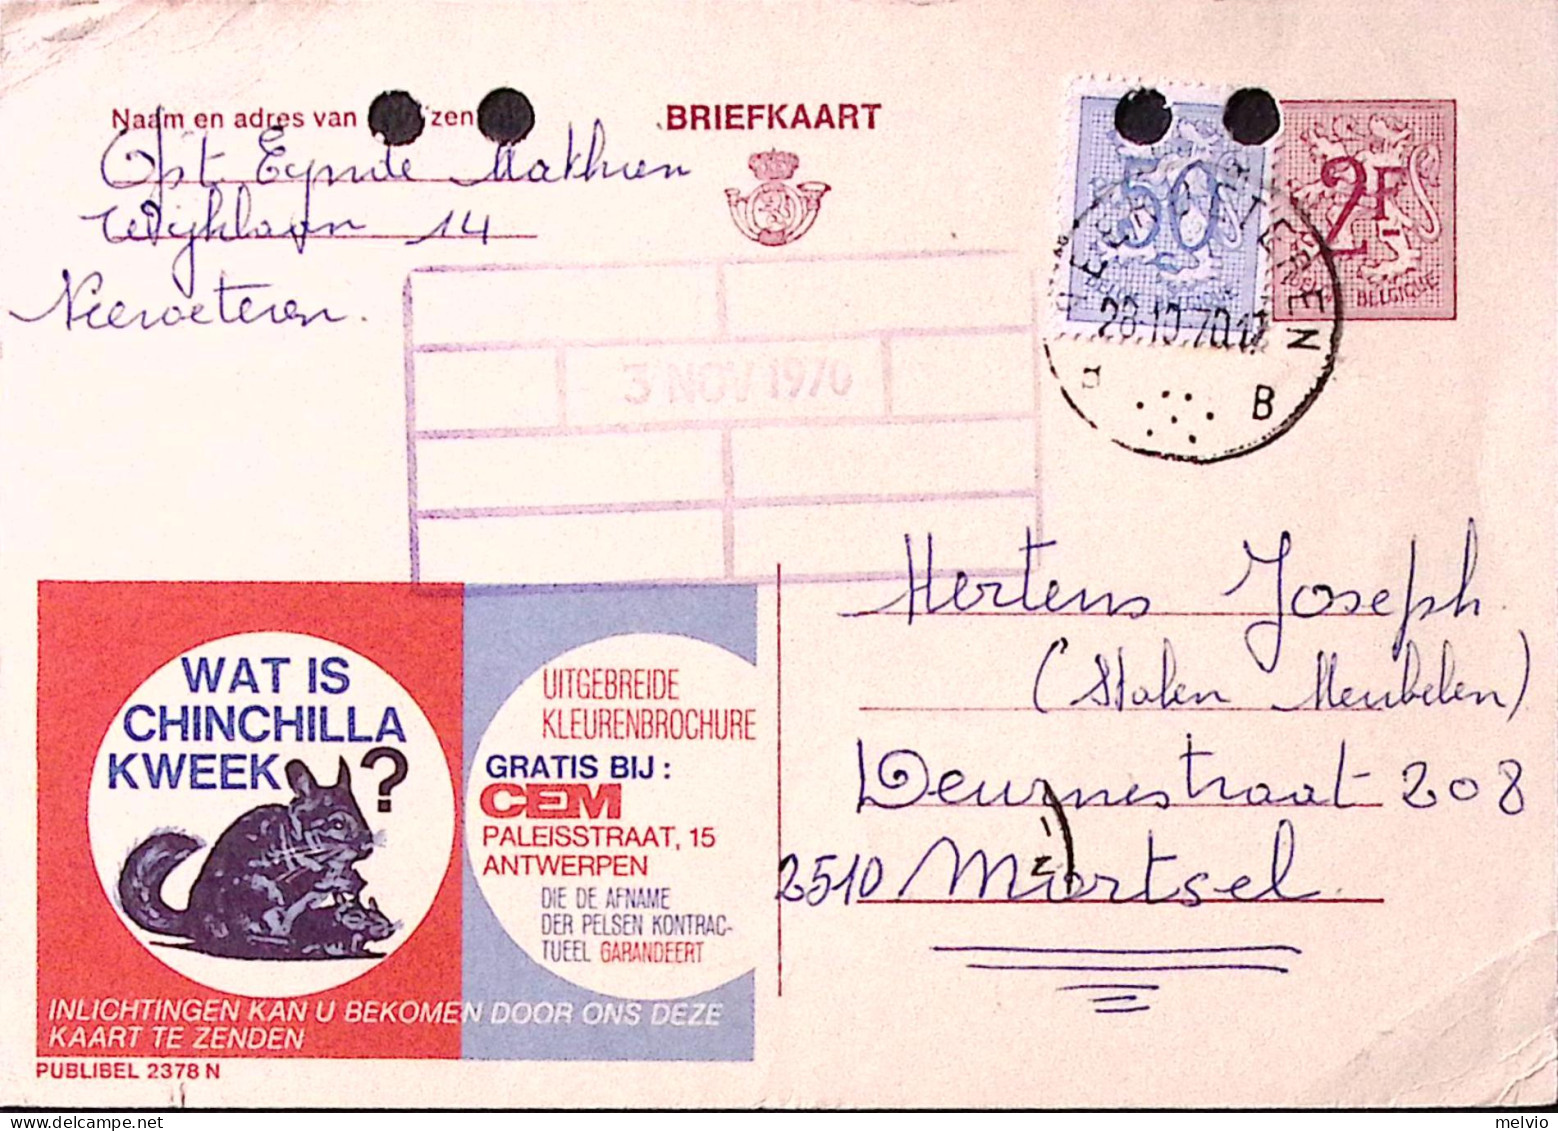 Naam en adres van zen
BRIEFKAART
Opt Eynde Mathieu
Wijklaan 14
Neeroeteren.
50
BELGIE-BELGIQUE
2F
BELGIQUE
NEEROETEREN
28-10-70
B
3 NOV 1970
Mertens Joseph
(Stalen Meubelen)
Deurnestraat 208
2510 Mortsel
WAT IS
CHINCHILLA
KWEEK ?
UITGEBREIDE
KLEURENBROCHURE
GRATIS BIJ :
CEM
PALEISSTRAAT, 15
ANTWERPEN
DIE DE AFNAME
DER PELSEN KONTRAC-
TUEEL GARANDEERT
INLICHTINGEN KAN U BEKOMEN DOOR ONS DEZE
KAART TE ZENDEN
PUBLIBEL 2378 N
melvio